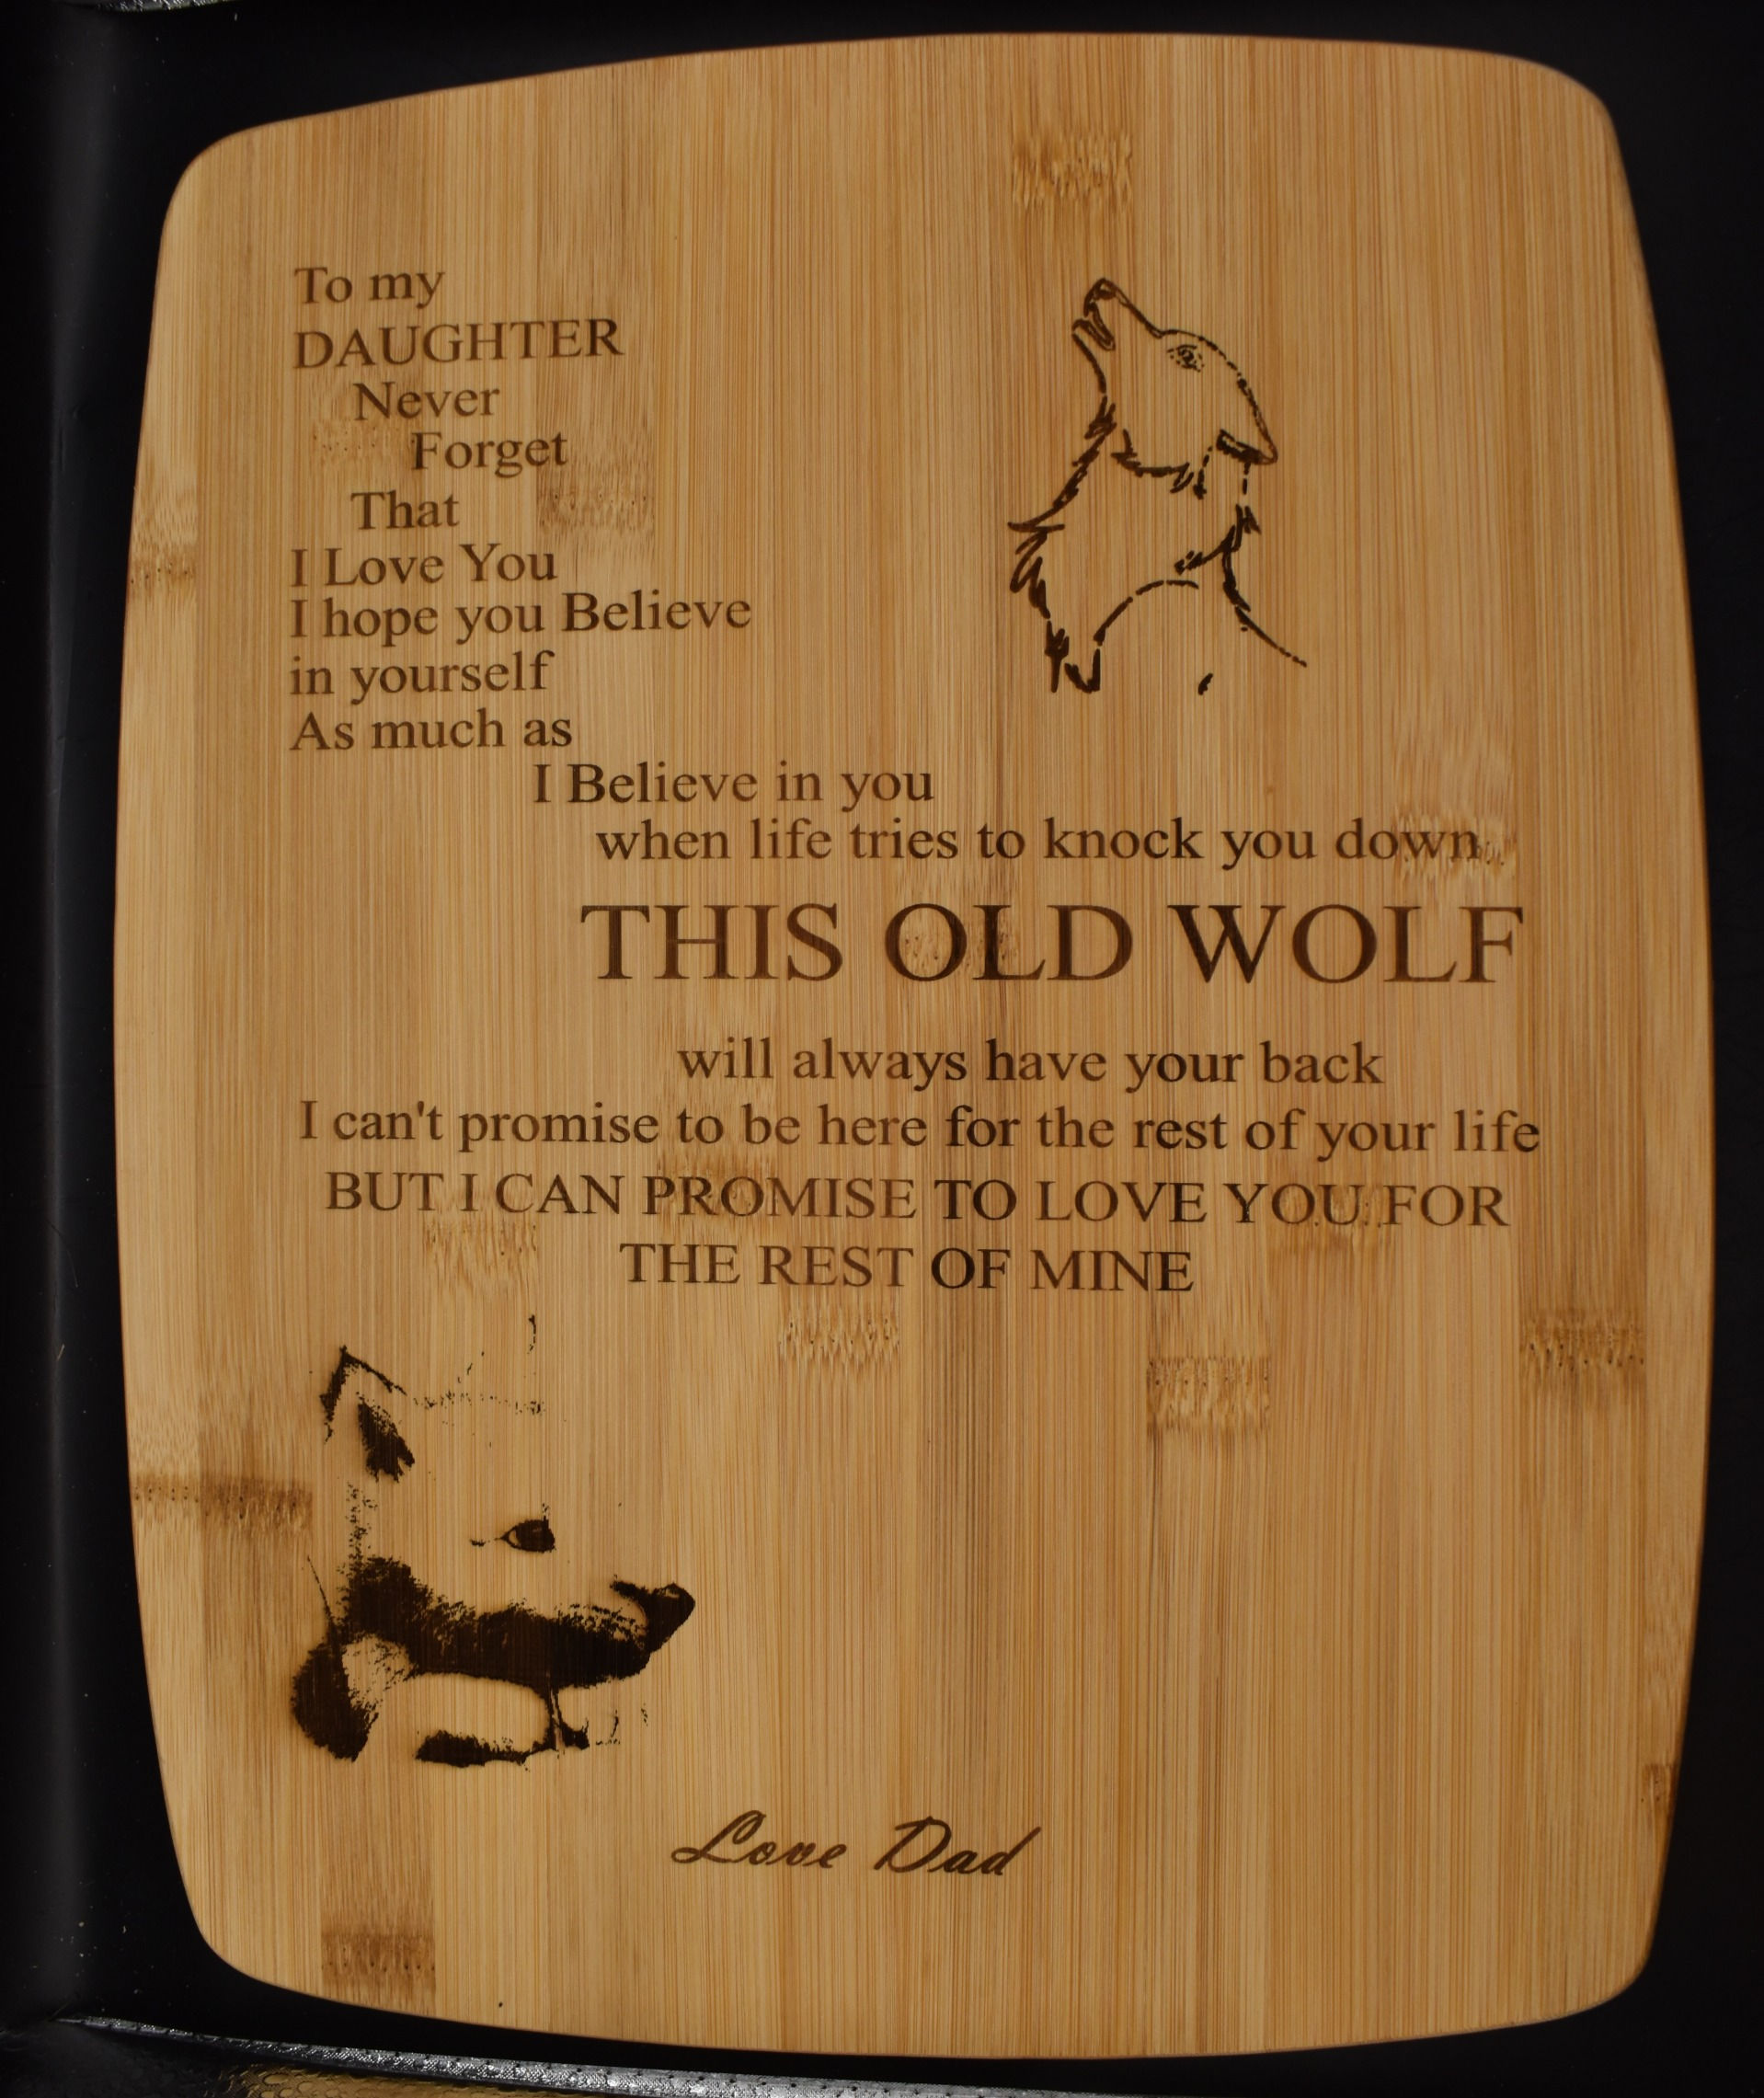 To my
DAUGHTER
Never
Forget
That
I Love You
I hope you Believe
in yourself
As much as
I Believe in you
when life tries to knock you down
THIS OLD WOLF
will always have your back
I can't promise to be here for the rest of your life
BUT I CAN PROMISE TO LOVE YOU FOR
THE REST OF MINE
Love Dad